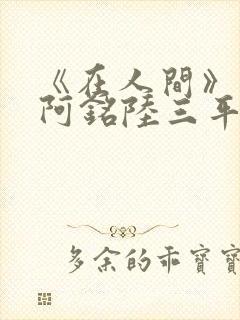 《在人間》
阿銘陸三年
多余的乖寶寶